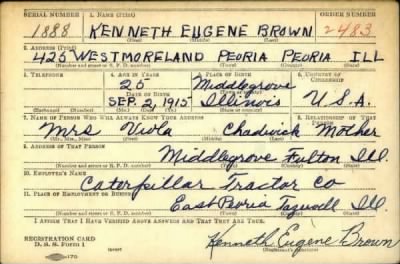 SERIAL NUMBER 1. NAME (Print) ORDER NUMBER
1888 KENNETH EUGENE BROWN 2483
2. ADDRESS (Print)
425 WESTMORELAND PEORIA PEORIA ILL
(Number and street or R. F. D. number) (Town) (County) (State)
3. TELEPHONE 4. AGE IN YEARS 5. PLACE OF BIRTH 6. COUNTRY OF CITIZENSHIP
25 Middlegrove
DATE OF BIRTH
SEP. 2, 1915 Illinois U.S.A.
(Exchange) (Number) (Mo.) (Day) (Yr.) (State or country)
7. NAME OF PERSON WHO WILL ALWAYS KNOW YOUR ADDRESS 8. RELATIONSHIP OF THAT PERSON
Mrs Viola Chadwick Mother
(Mr., Mrs., Miss) (First) (Middle) (Last)
9. ADDRESS OF THAT PERSON
Middlegrove Fulton Ill.
(Number and street or R. F. D. number) (Town) (County) (State)
10. EMPLOYER'S NAME
Caterpillar Tractor Co
11. PLACE OF EMPLOYMENT OR BUSINESS
East Peoria Tazwell Ill.
(Number and street or R. F. D. number) (Town) (County) (State)
I AFFIRM THAT I HAVE VERIFIED ABOVE ANSWERS AND THAT THEY ARE TRUE.
REGISTRATION CARD
D. S. S. Form 1 Kenneth Eugene Brown
(Registrant's signature)